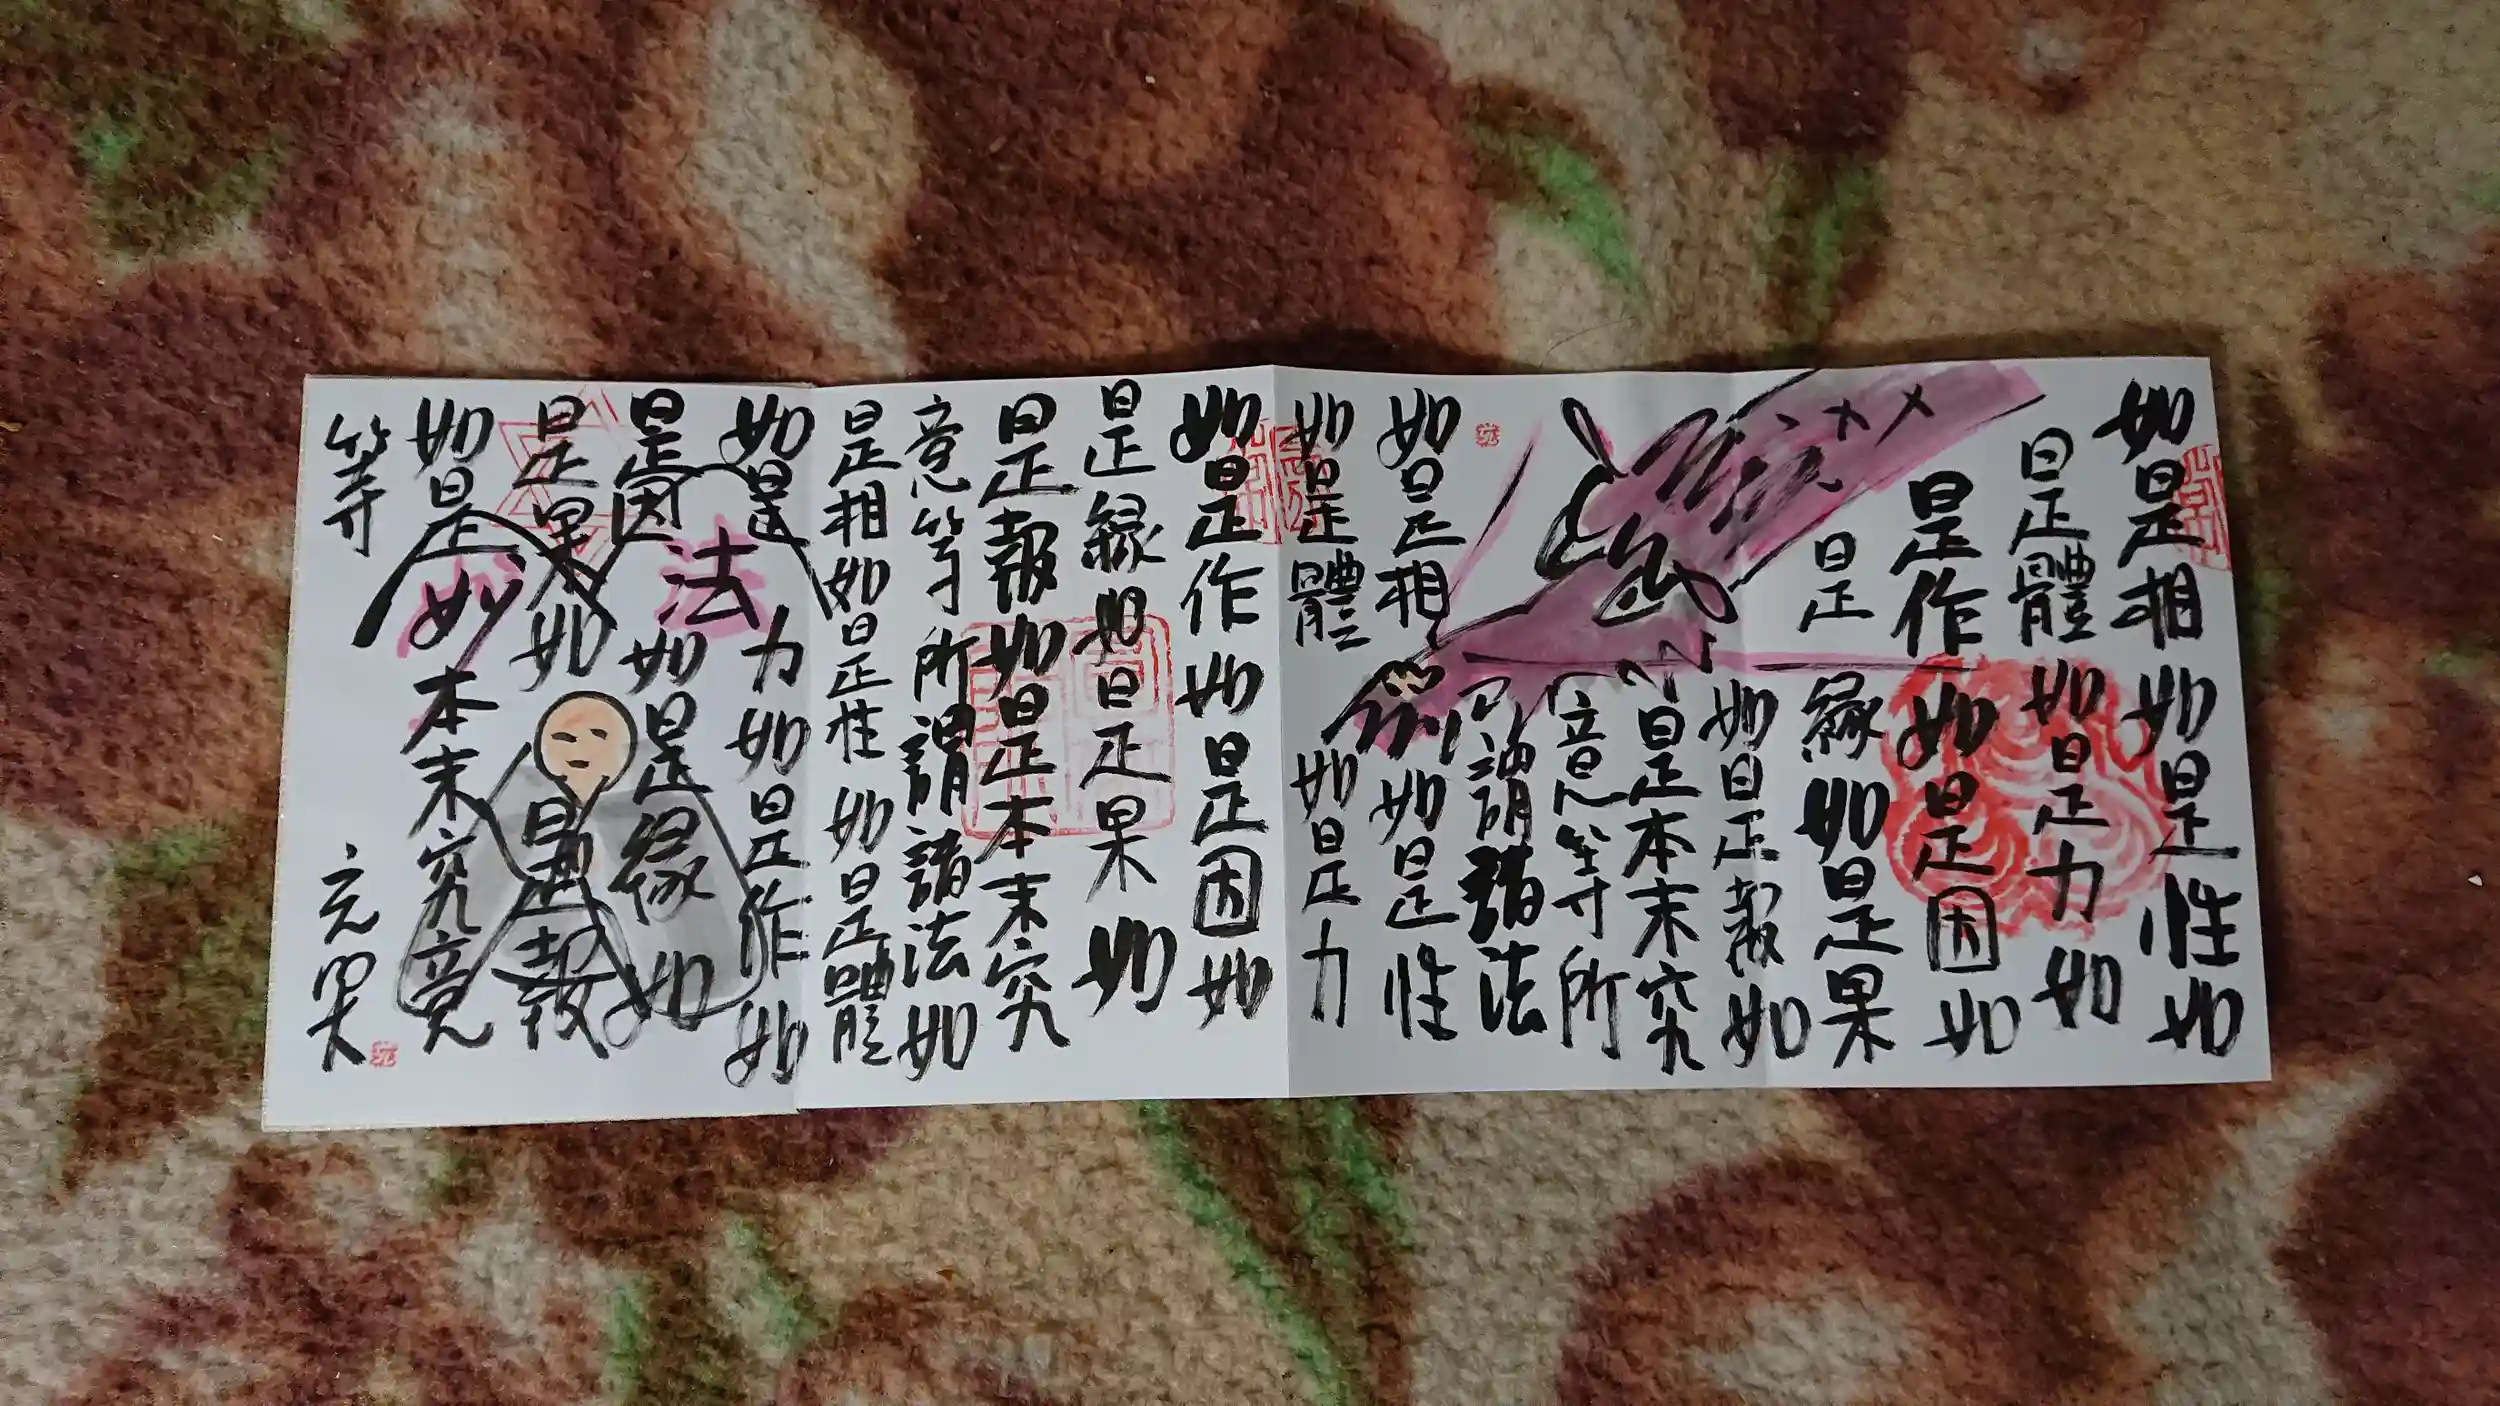 如是相如是性如
是體如是力如
是作如是因如
是縁如是果
如是報如
是本末究
竟等所
謂諸法
如是相如是性
如是體如是力
如是作如是因如
是縁如是果如
是報如是本末究
竟等所謂諸法如
是相如是性如是體
如是力如是作如
是因如是縁如
是果如是報
如是本末究竟
等
妙法